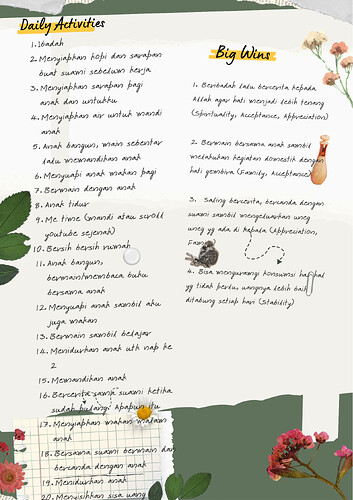 Daily Activities
1. Ibadah
2. Menyiaphan kopi dan sarapan
buat suami sebelum kerja
3. Menyiaphan sarapan pagi
anak dan untukku
4. Menyiaphan air untuk mandi
anak
5. Anak bangun, main sebentar
lalu memandikan anak
6. Menyuapi anak makan pagi
7. Bermain dengan anak
8. Anak tidur
9. Me time (mandi atau scroll
youtube sejenak)
10. Bersih bersih rumah
11. Anak bangun,
bermain+membaca buku
bersama anak
12. Menyuapi anak sambil aku
juga makan
13. Bermain sambil belajar
14. Menidurkan anak utk nap ke
2
15. Memandikan anak
16. Bercerita sama suami ketika
sudah pulang. Apapun itu
17. Menyiapkan makan malam
anak
18. Bersama suami bermain dan
bercanda dengan anak
19. Menidurkan anak
20. Menyisihkan sisa uang
Big Wins
1. Beribadah lalu bercerita kepada
Allah agar hati menjadi lebih tenang
(Spirituality, Acceptance, Appreciation)
2. Bermain bersama anak sambil
melakukan kegiatan domestik dengan
hati gembira (Family, Acceptance)
3. Saling bercerita, bercanda dengan
suami sambil mengeluarkan uneg
uneg yg ada di kepala (Appreciation,
4. Bisa mengurangi konsumsi
yg tidak perlu, uangnya lebih baik
ditabung setiap hari (Stability)